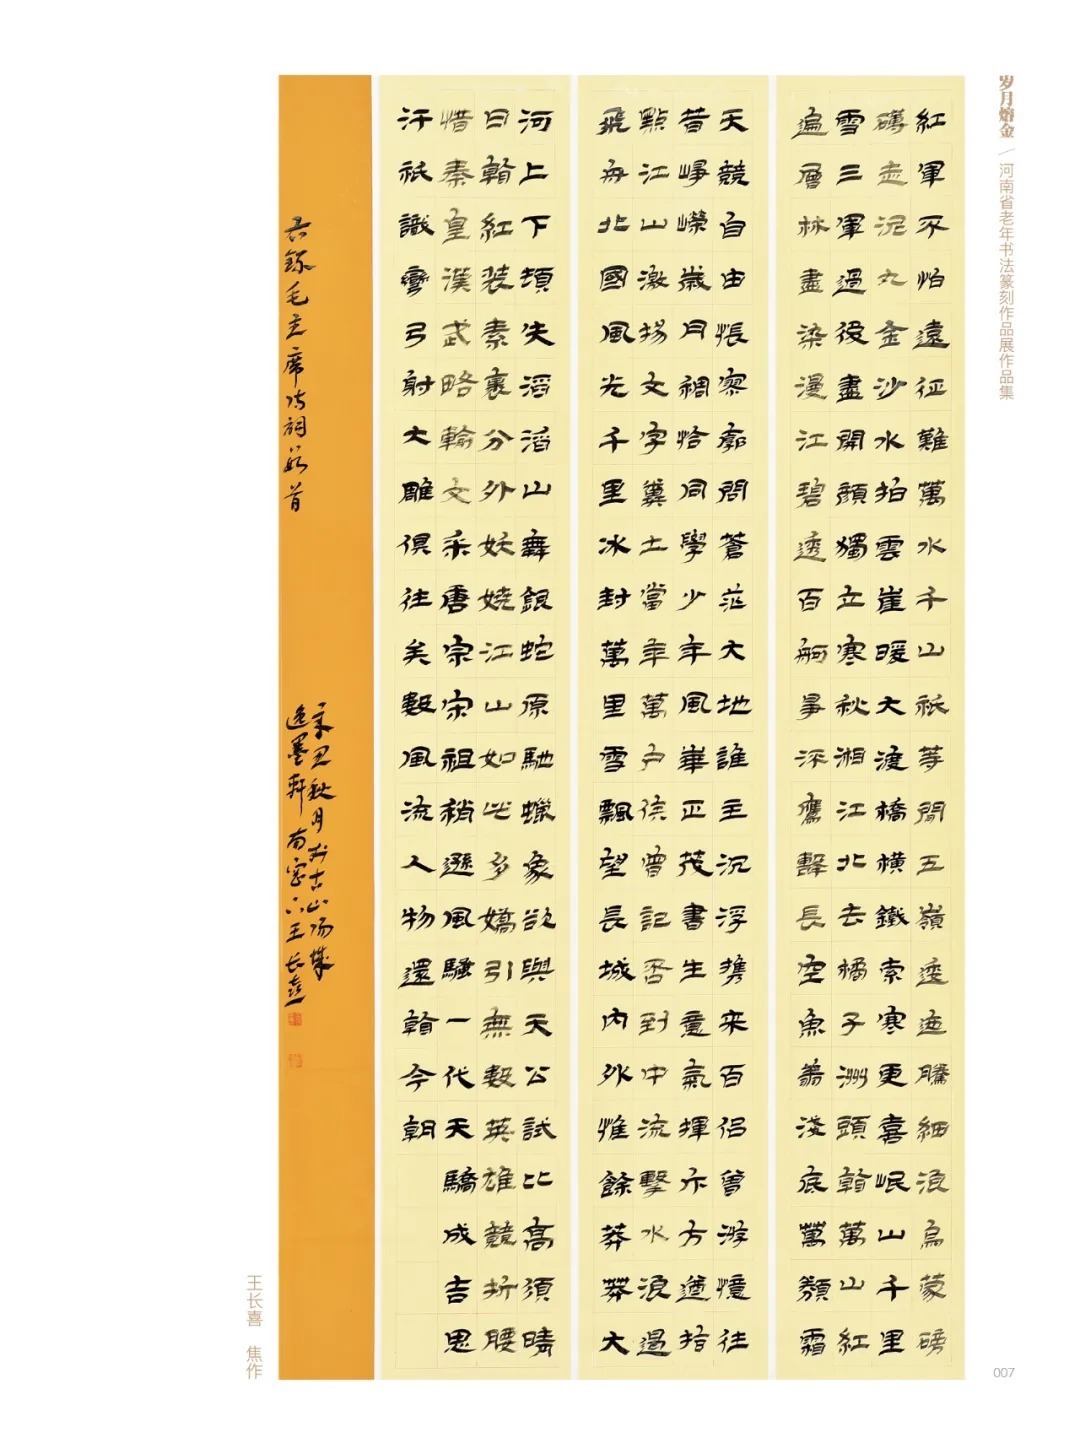 岁月熔金／河南省老年书法篆刻作品展作品集
紅軍不怕遠征難萬水千山祇等閒五嶺逶迤騰細浪烏蒙磅
礴走泥丸金沙水拍雲崖暖大渡橋橫鐵索寒更喜岷山千里
雪三軍過後盡開顏獨立寒秋湘江北去橘子洲頭看萬山紅
遍層林盡染漫江碧透百舸爭流鷹擊長空魚翔淺底萬類霜
天競自由悵寥廓問蒼茫大地誰主沉浮攜來百侶曾游憶往
昔崢嶸歲月稠恰同學少年風華正茂書生意氣揮斥方遒指
點江山激揚文字糞土當年萬戶侯曾記否到中流擊水浪遏
飛舟北國風光千里冰封萬里雪飄望長城內外惟餘莽莽大
河上下頓失滔滔山舞銀蛇原馳蠟象欲與天公試比高須晴
日看紅裝素裹分外妖嬈江山如此多嬌引無數英雄競折腰
惜秦皇漢武略輸文采唐宗宋祖稍遜風騷一代天驕成吉思
汗祇識彎弓射大雕俱往矣數風流人物還看今朝
恭錄毛主席诗詞數首
辛丑秋月於古山阳城
逸墨軒南窗下王长喜
王长喜 焦作
007